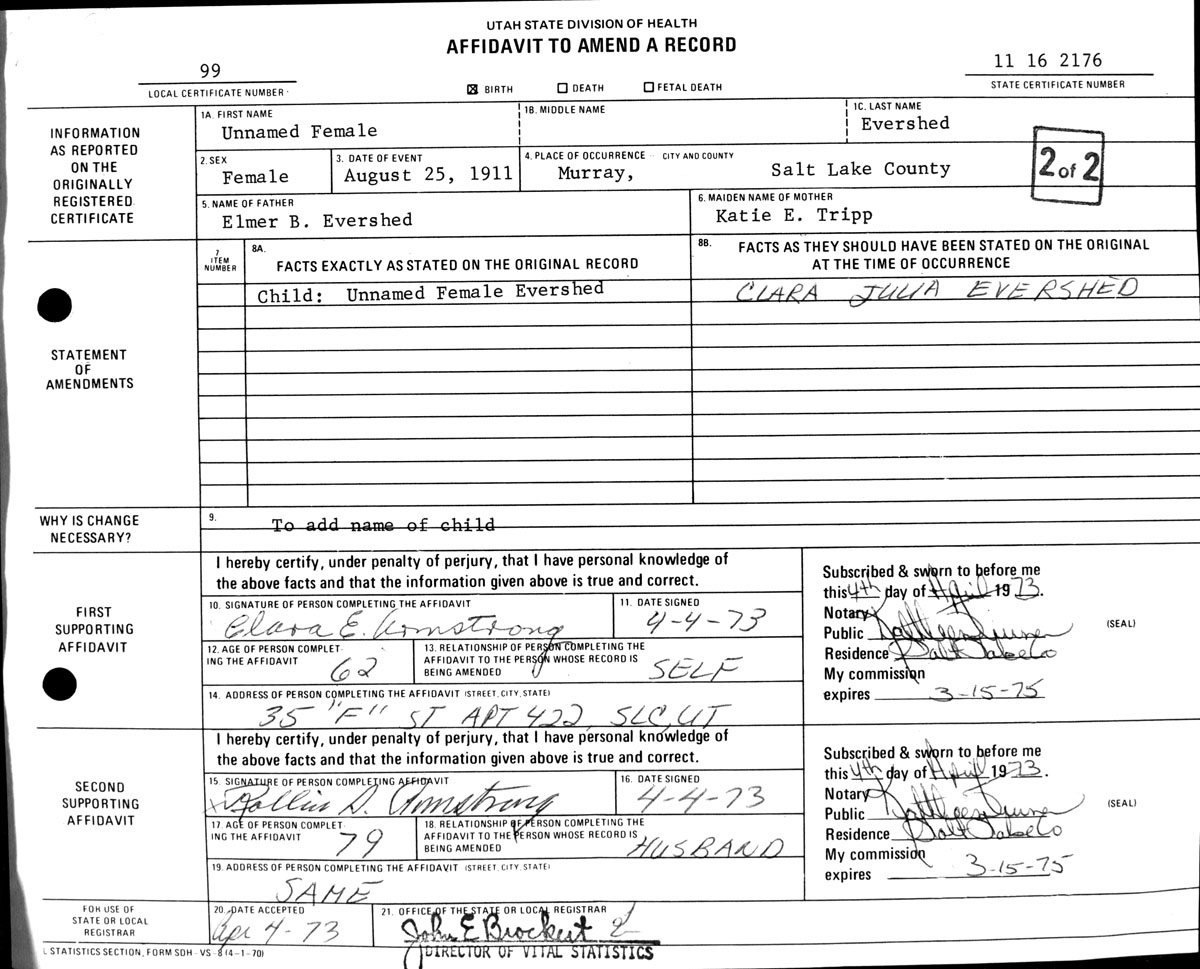 UTAH STATE DIVISION OF HEALTH
AFFIDAVIT TO AMEND A RECORD
99
LOCAL CERTIFICATE NUMBER
☒ BIRTH ☐ DEATH ☐ FETAL DEATH
11 16 2176
STATE CERTIFICATE NUMBER
INFORMATION
AS REPORTED
ON THE
ORIGINALLY
REGISTERED
CERTIFICATE
1A. FIRST NAME
Unnamed Female
1B. MIDDLE NAME
1C. LAST NAME
Evershed
2. SEX
Female
3. DATE OF EVENT
August 25, 1911
4. PLACE OF OCCURRENCE - CITY AND COUNTY
Murray, Salt Lake County
2 of 2
5. NAME OF FATHER
Elmer B. Evershed
6. MAIDEN NAME OF MOTHER
Katie E. Tripp
STATEMENT
OF
AMENDMENTS
7
ITEM
NUMBER
8A.
FACTS EXACTLY AS STATED ON THE ORIGINAL RECORD
8B.
FACTS AS THEY SHOULD HAVE BEEN STATED ON THE ORIGINAL
AT THE TIME OF OCCURRENCE
Child: Unnamed Female Evershed
CLARA JULIA EVERSHED
WHY IS CHANGE
NECESSARY?
9.
To add name of child
FIRST
SUPPORTING
AFFIDAVIT
I hereby certify, under penalty of perjury, that I have personal knowledge of
the above facts and that the information given above is true and correct.
10. SIGNATURE OF PERSON COMPLETING THE AFFIDAVIT
Clara E. Armstrong
11. DATE SIGNED
4-4-73
12. AGE OF PERSON COMPLET-
ING THE AFFIDAVIT
62
13. RELATIONSHIP OF PERSON COMPLETING THE
AFFIDAVIT TO THE PERSON WHOSE RECORD IS
BEING AMENDED
SELF
14. ADDRESS OF PERSON COMPLETING THE AFFIDAVIT (STREET, CITY, STATE)
35 "F" ST APT 422, SLC, UT
Subscribed & sworn to before me
this 4th day of April 1973.
Notary
Public
Residence Salt Lake Co
My commission
expires 3-15-75
(SEAL)
SECOND
SUPPORTING
AFFIDAVIT
I hereby certify, under penalty of perjury, that I have personal knowledge of
the above facts and that the information given above is true and correct.
15. SIGNATURE OF PERSON COMPLETING AFFIDAVIT
Rollin D. Armstrong
16. DATE SIGNED
4-4-73
17. AGE OF PERSON COMPLET-
ING THE AFFIDAVIT
79
18. RELATIONSHIP OF PERSON COMPLETING THE
AFFIDAVIT TO THE PERSON WHOSE RECORD IS
BEING AMENDED
HUSBAND
19. ADDRESS OF PERSON COMPLETING THE AFFIDAVIT (STREET, CITY, STATE)
SAME
Subscribed & sworn to before me
this 4th day of April 1973.
Notary
Public
Residence Salt Lake Co
My commission
expires 3-15-75
(SEAL)
FOR USE OF
STATE OR LOCAL
REGISTRAR
20. DATE ACCEPTED
Apr 4-73
21. OFFICE OF THE STATE OR LOCAL REGISTRAR
John E Brockert
DIRECTOR OF VITAL STATISTICS
STATISTICS SECTION, FORM SDH - VS - 8 (4-1-70)